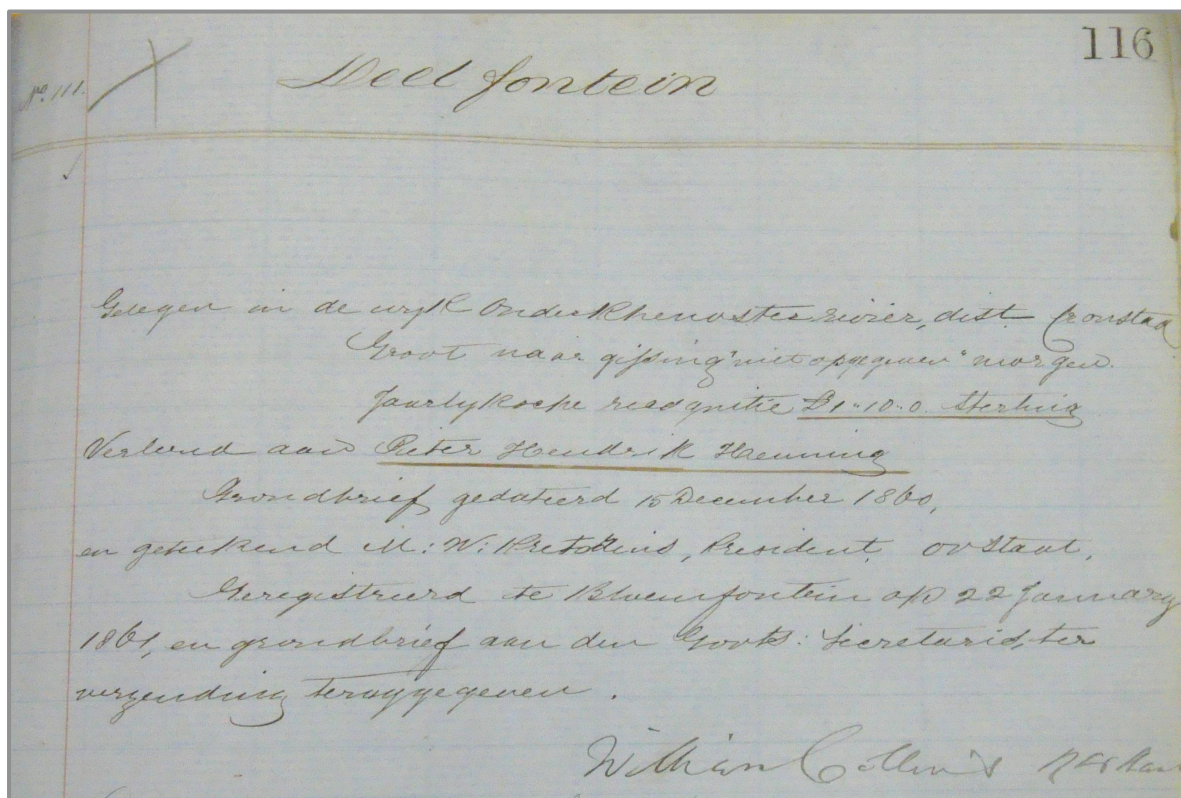 116
No. 111.
Deelfontein
Gelegen in de wyk Onder Rhenoster rivier, dist. Cronstad
Groot naar gissing "niet opgegeven" morgen.
Jaarlyksche recognitie £1-10-0. Sterling
Verleend aan Pieter Hendrik Henning
Grondbrief gedateerd 15 December 1860,
en geteekend M: W: Pretorius, President, OV Staat,
Geregistreerd te Bloemfontein op 22 January
1861, en grondbrief aan den Govts: Secretaris, ter
verzending teruggegeven.
William Collins